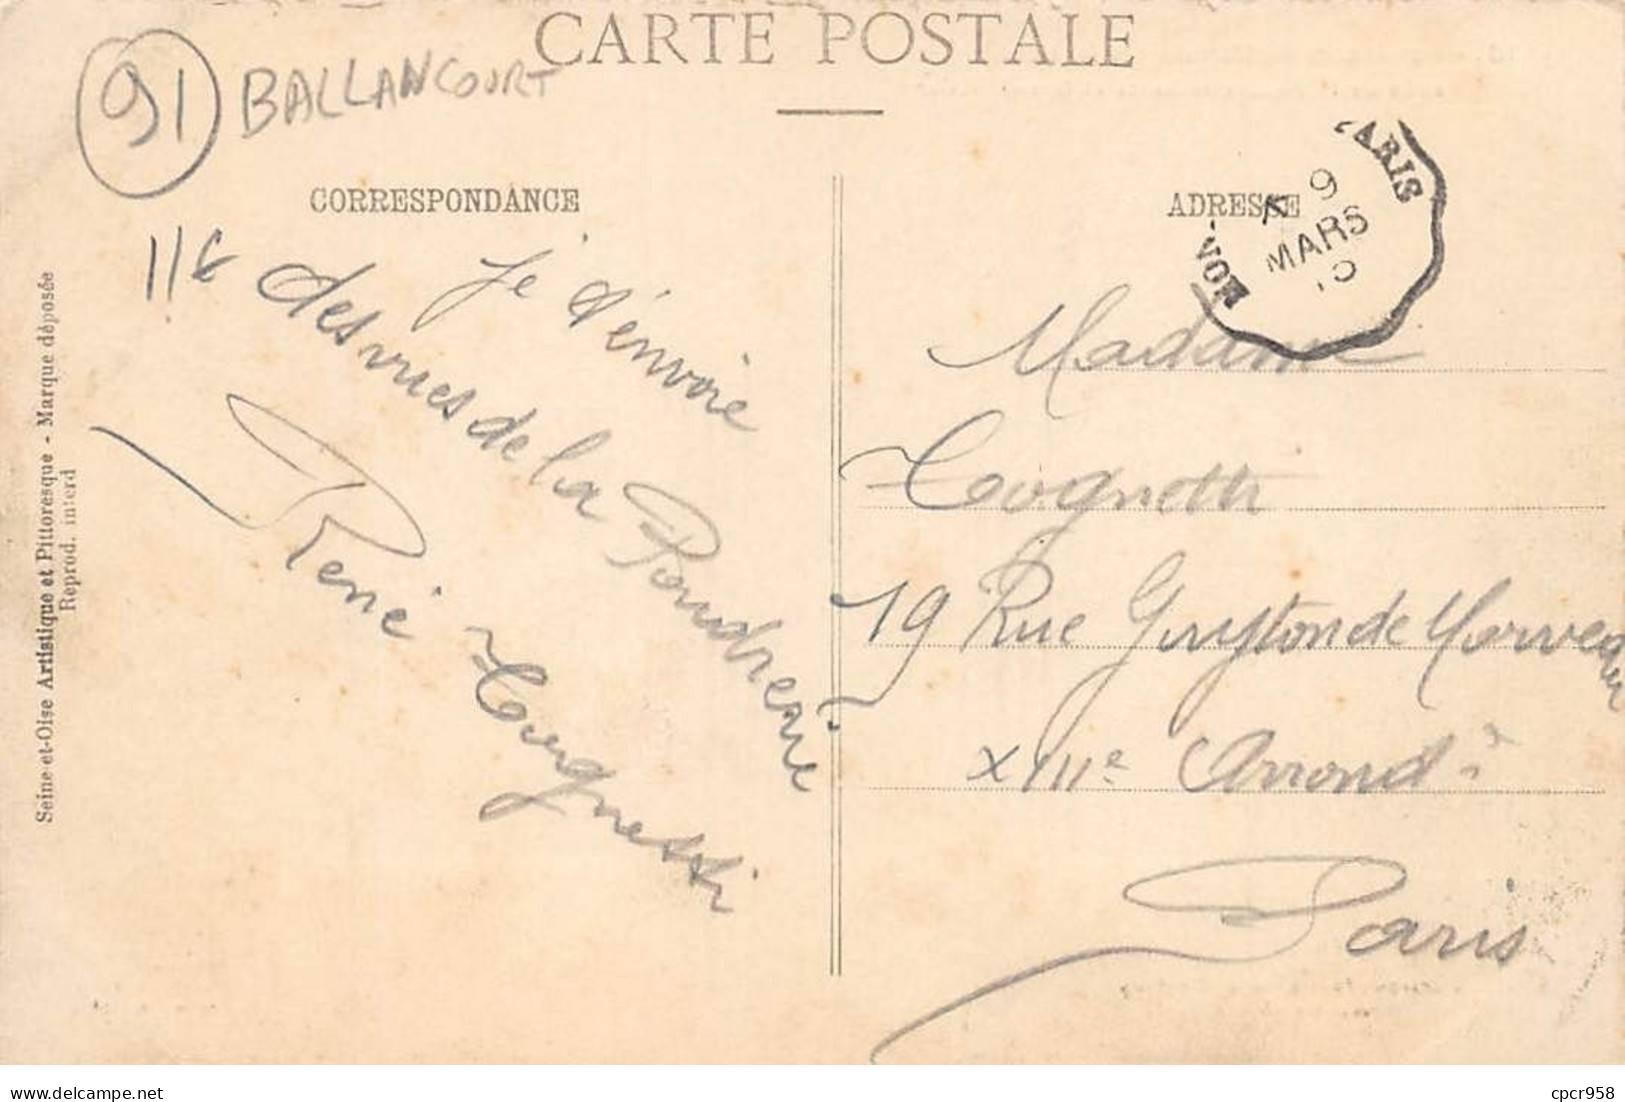 CARTE POSTALE
91 BALLANCOURT
CORRESPONDANCE
Je t'envoie
des vues de la Poudrerie
René
ADRESSE
PARIS
9
MARS
Madame
19 Rue Guyton de Morveau
XIIIe Arrondt
Paris
Seine-et-Oise Artistique et Pittoresque - Marque déposée
Reprod. interd
www.delcampe.net
cpcr958